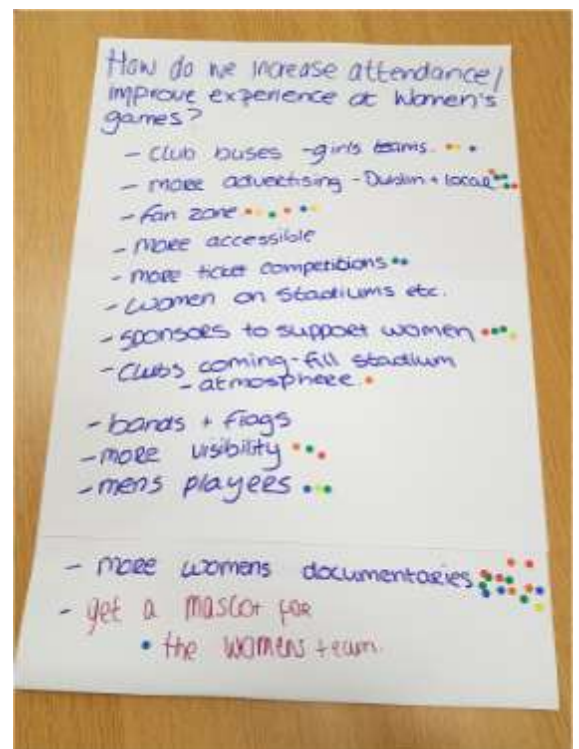 How do we increase attendance/
improve experience at Women's
games?
- Club buses - girls teams.
- more advertising - Dublin + local
- fan zone
- more accessible
- more ticket competitions
- Women on Stadiums etc.
- sponsors to support women
- Clubs coming - fill stadium
- atmosphere
- bands + flags
- more visibility
- mens players
- more womens documentaries
- get a mascot for
the womens team.